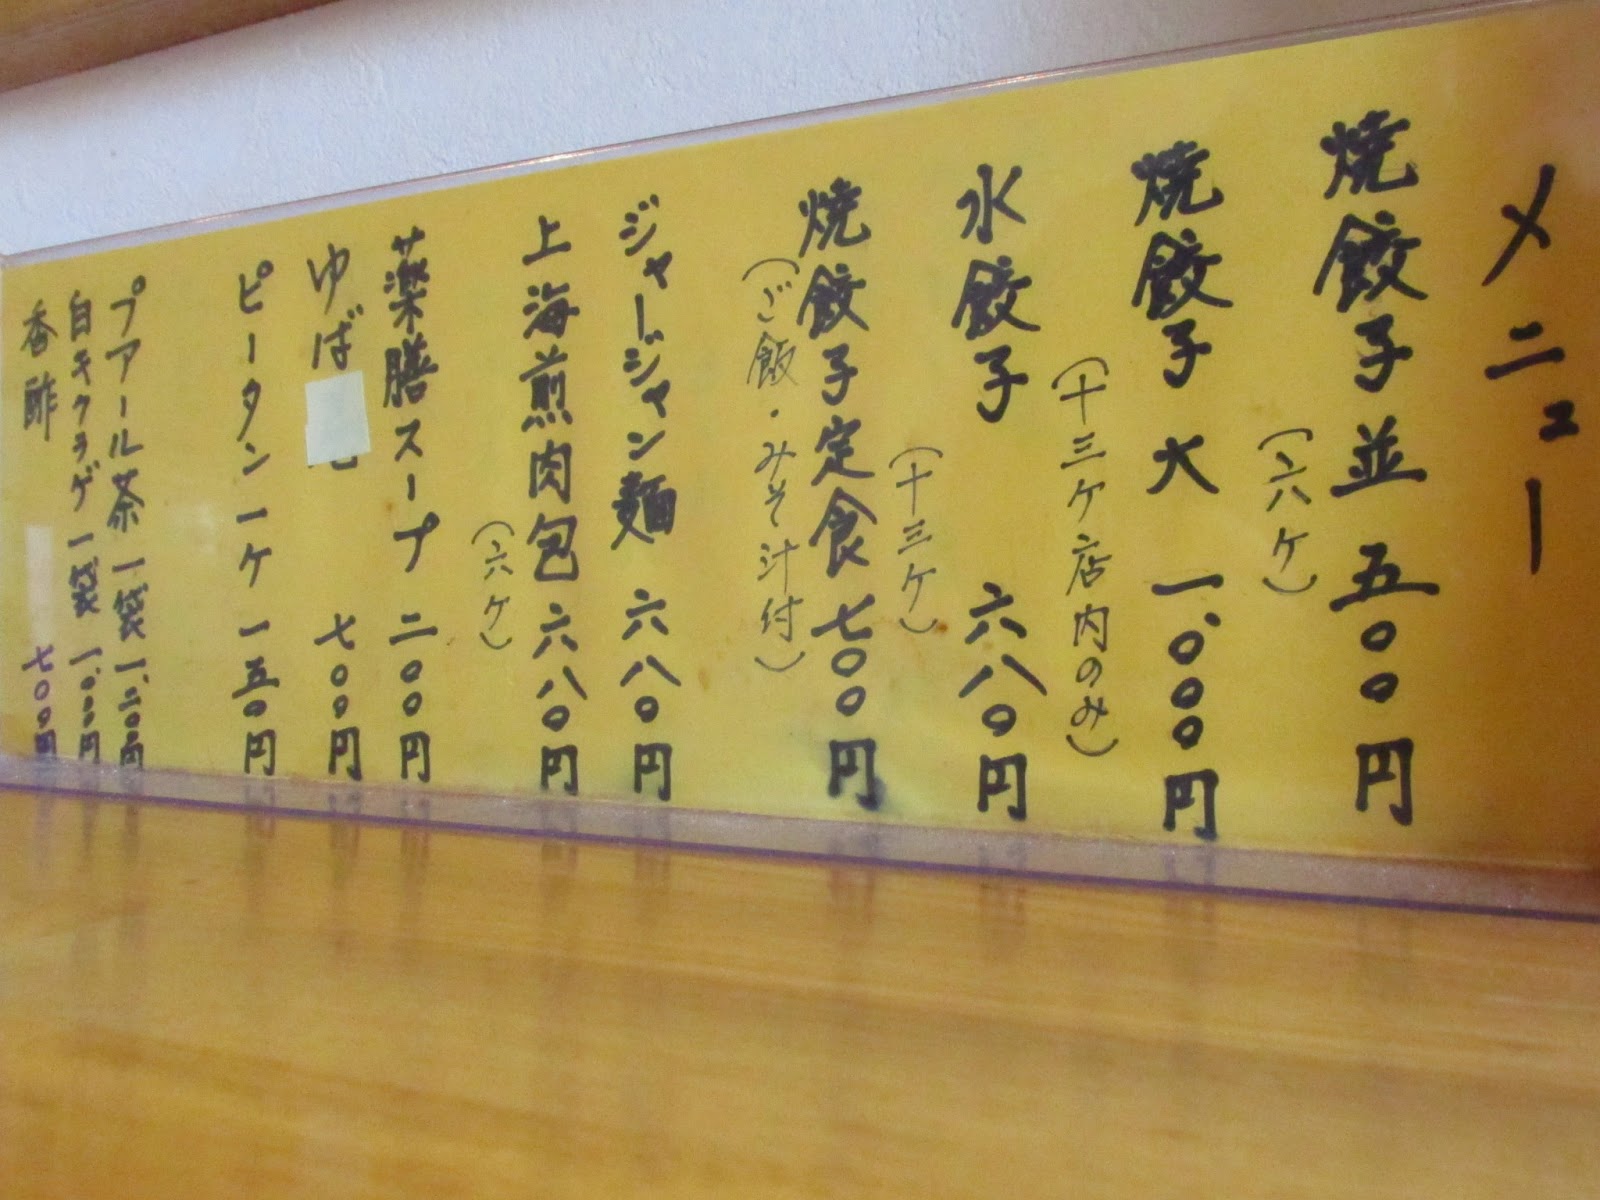 メニュー
焼餃子並 五〇〇円
(六ケ)
焼餃子 大 一、〇〇〇円
(十三ケ店内のみ)
水餃子 六八〇円
(十三ケ)
焼餃子定食 七〇〇円
(ご飯・みそ汁付)
ジャージャン麺 六八〇円
上海煎肉包 六八〇円
(六ケ)
薬膳スープ 二〇〇円
ゆば 七〇〇円
ピータン 一ケ 一五〇円
プアール茶 一袋 一、二〇〇円
白キクラゲ 一袋 一、〇〇〇円
香酢 七〇〇円